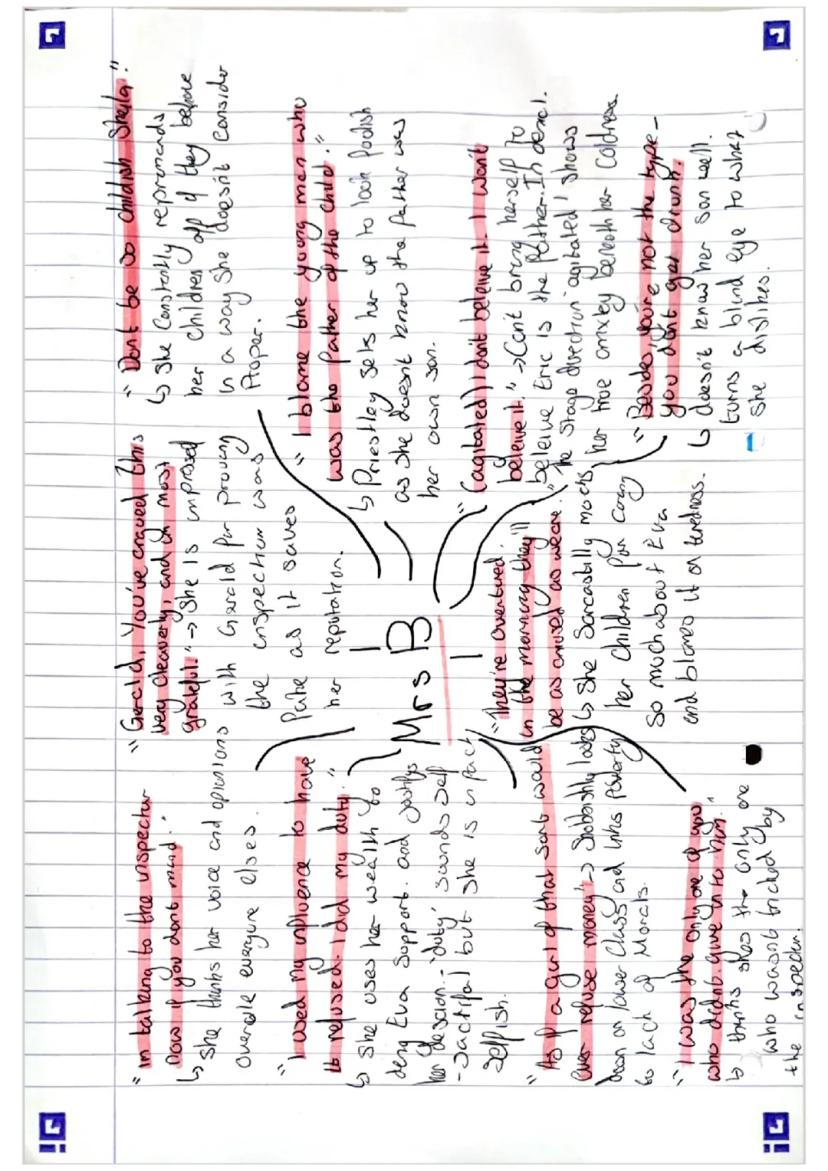 Mrs B
"Im talking to the inspector
now if you dont mind."
↳ She thinks her voice and opinions
overule everyone elses.
"I used my influence to have
it refused. I did my duty."
↳ She uses her wealth to
deny Eva Support. and justifys
her descion - 'duty' sounds self
- sacrifical but she is infact
selfish.
"As if a girl of that sort would
ever refuse money" → Snobbishly looks
down on lower Class and links poverty
to lack of Morals.
"I was the only one of you
who didnt give in to him."
↳ thinks shes the only one
who wasnt tricked by
the inspector.
"Gerald, You've craved this
very cleaverly, and im most
grateful." → She is impressed
with Gerald for proving
the inspection was
Fake as it saves
her reputation.
"They're overtired.
In the morning they'll
be as amused as we are."
↳ She Sarcastilly mocks
her children for caring
So much about Eva
and blames it on tiredness.
"Dont be so childish Sheila."
↳ She Constantly reprimands
her Children off if they behave
in a way She doesn't consider
Proper.
"I blame the young man who
was the Father of the child."
↳ Priestley sets her up to look foolish
as she doesnt know the father was
her own son.
"(agitated) I dont beleive it. I won't
beleive it." → Cant bring herself to
beleive Eric is the father. In denial.
The Stage direction 'agitated' Shows
her true anxiety beneath her Coldness.
"Beside, you're not the type -
you don't get drunk.
↳ doesn't know her son well.
turns a blind eye to what
She dislikes.